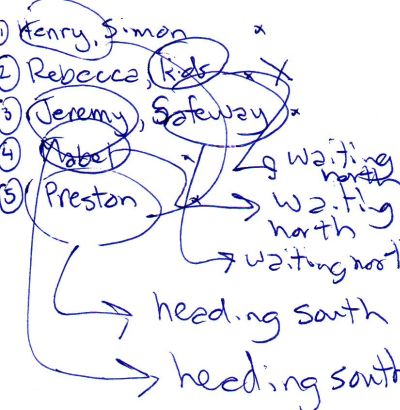 1 Henry, Simon
2 Rebecca, kids
3 Jeremy, Safeway
4 Mabel
5 Preston
waiting north
waiting north
waiting nort
heading south
heading south